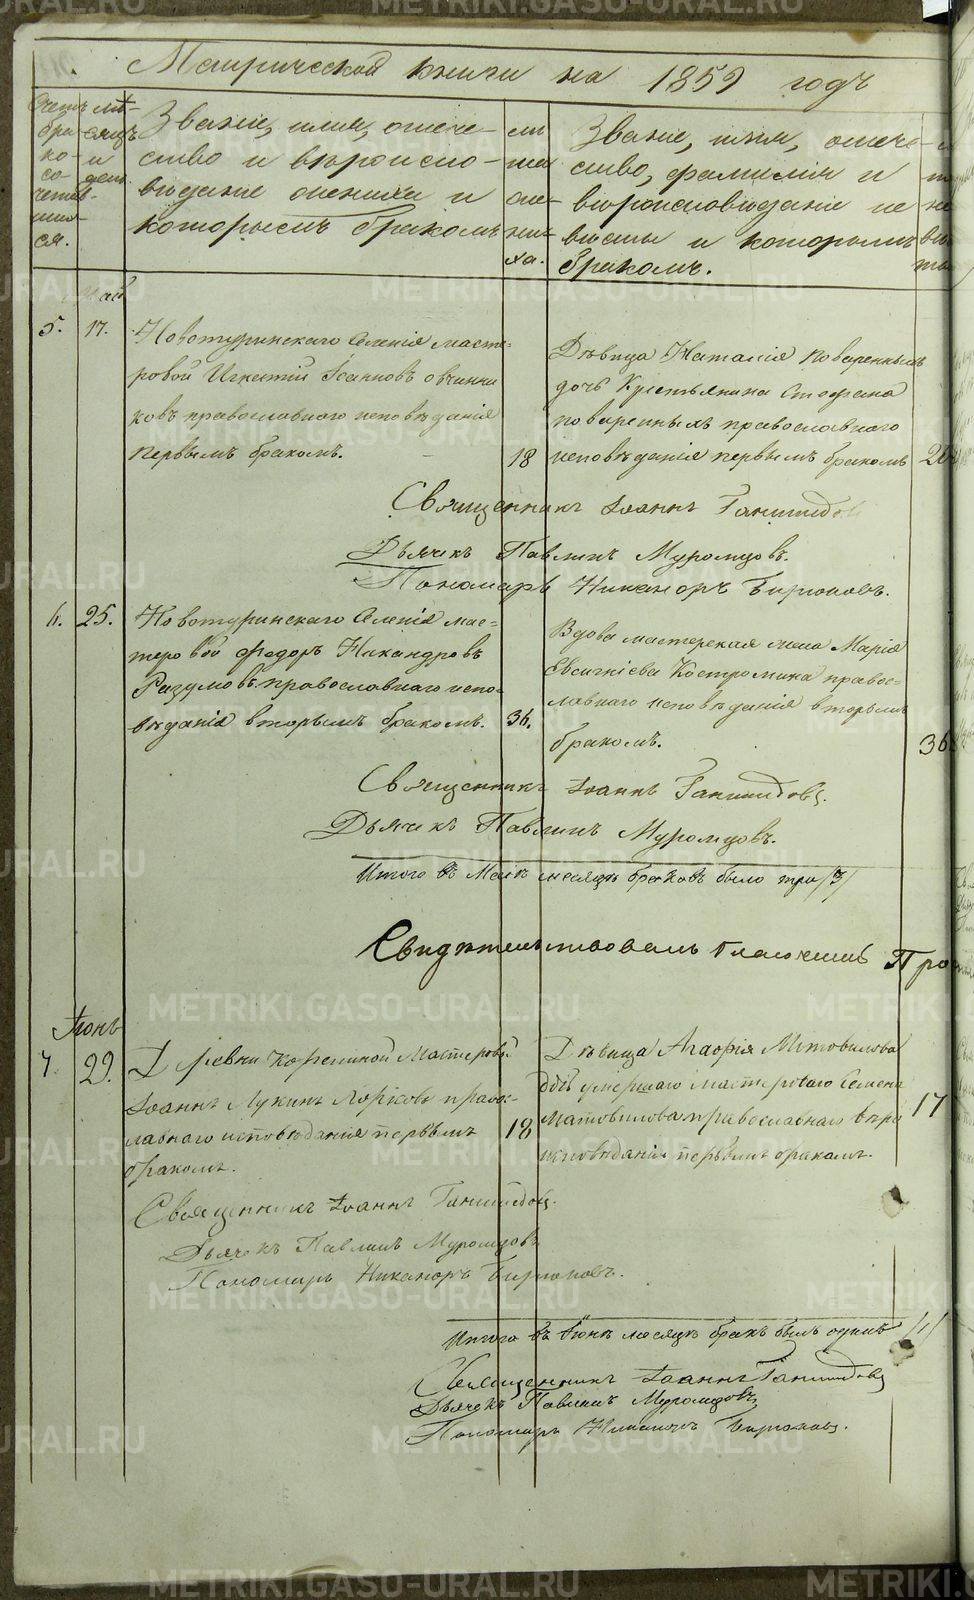 Метрической книги на 1859 годъ
Счетъ бра-ко-со-четав-шихся.
мѣ-сяцъ и день.
Званіе, имя, отече-
ство и вѣроиспо-
вѣданіе жениха и
которымъ бракомъ
лѣ-
та
же-
ни-
ха.
Званіе, имя, отече-
ство, фамилія и
вѣроисповѣданіе не
вѣсты и которымъ
бракомъ.
Май
5. 17.
Новотуринскаго селенія масте-
ровой Игнатій Іоанновъ Овчинни
ковъ православнаго исповѣданія
первымъ бракомъ.
18
Дѣвица Наталія Поваренныхъ
дочь Крестьянина Стефана
Поваренныхъ православнаго
исповѣданія первымъ бракомъ
Священникъ Іоаннъ
Дьячекъ Павлинъ Муромцовъ.
Пономарь Никаноръ Бирюковъ.
6. 25.
Новотуринскаго селенія мас-
теровой Федоръ Никандровъ
Разумовъ православнаго испо-
вѣданія вторымъ бракомъ.
36.
Вдова мастерская жена Марія
Евсигніева Костромина правос-
лавнаго исповѣданія вторымъ
бракомъ.
36
Священникъ Іоаннъ
Дьячекъ Павлинъ Муромцовъ.
Итого въ Маѣ месяцѣ браковъ было три /3/
Свидѣтельствовалъ
Іюнь
7. 29.
Деревни Корелиной Мастеровой
Іоаннъ Лукинъ правос-
лавнаго исповѣданія первымъ
бракомъ.
18
Дѣвица Агафія Мѣтовилова
умершаго мастероваго Семена
Матовилова православнаго вѣро
исповѣданія первымъ бракомъ.
17
Священникъ Іоаннъ
Дьячекъ Павлинъ Муромцовъ
Пономарь Никаноръ Бирюковъ.
Итого въ Іюнѣ месяцѣ бракъ былъ одинъ /1/
Священникъ Іоаннъ
Дьячекъ Павлинъ Муромцовъ
Пономарь Никаноръ Бирюковъ.
METRIKI.GASO-URAL.RU